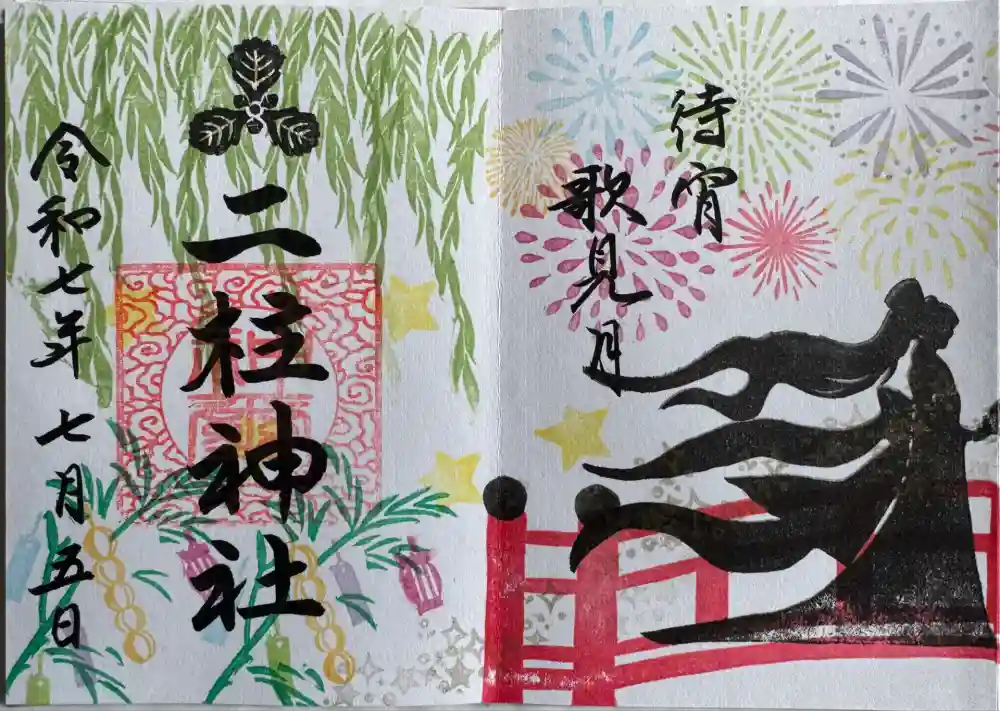 待宵
歌見月
二柱神社
令和七年 七月 五日